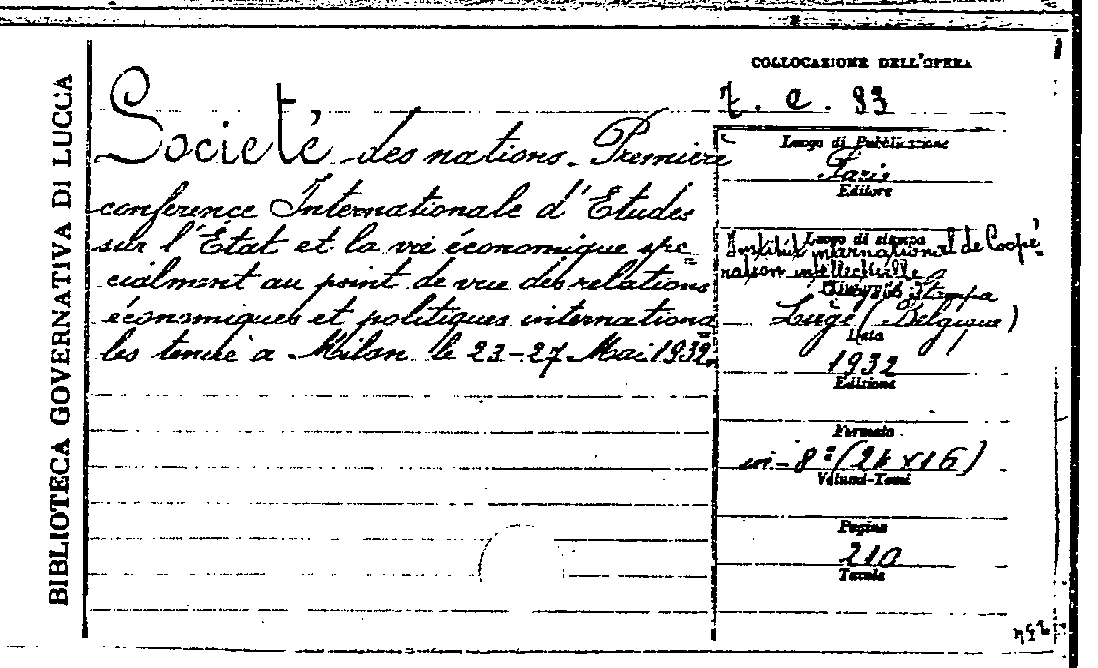 BIBLIOTECA GOVERNATIVA DI LUCCA
Societé des nations. Première
conference Internationale d'Etudes
sur l'État et la vie économique spe=
cialment au point de vue des relations
économiques et politiques internationa=
les tenue a Milan le 23-27 Mai 1932.
COLLOCAZIONE DELL'OPERA
7. e. 93
Luogo di Pubblicazione
Paris
Editore
Luogo di stampa
Institut international de Coopé=
ration intellectuelle
Stampa
Liège (Belgique)
Data
1932
Edizione
Formato
in-8° (24x16)
Volumi-Tomi
Pagine
210
Tavole